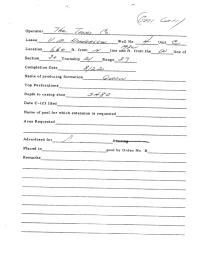 Operator The Texas Co
Lease Well No. 4 Unit C
Location 660 ft. from N line and ft. from the W line of
Section 30 Township 21 Range 37
Completion Date
Name of producing formation Queen
Top Perforations
Depth to casing shoe 3480
Date C-123 filed
Name of pool for which extension is requested
Area Requested
Advertised for
Placed in pool by Order No. R-
Remarks